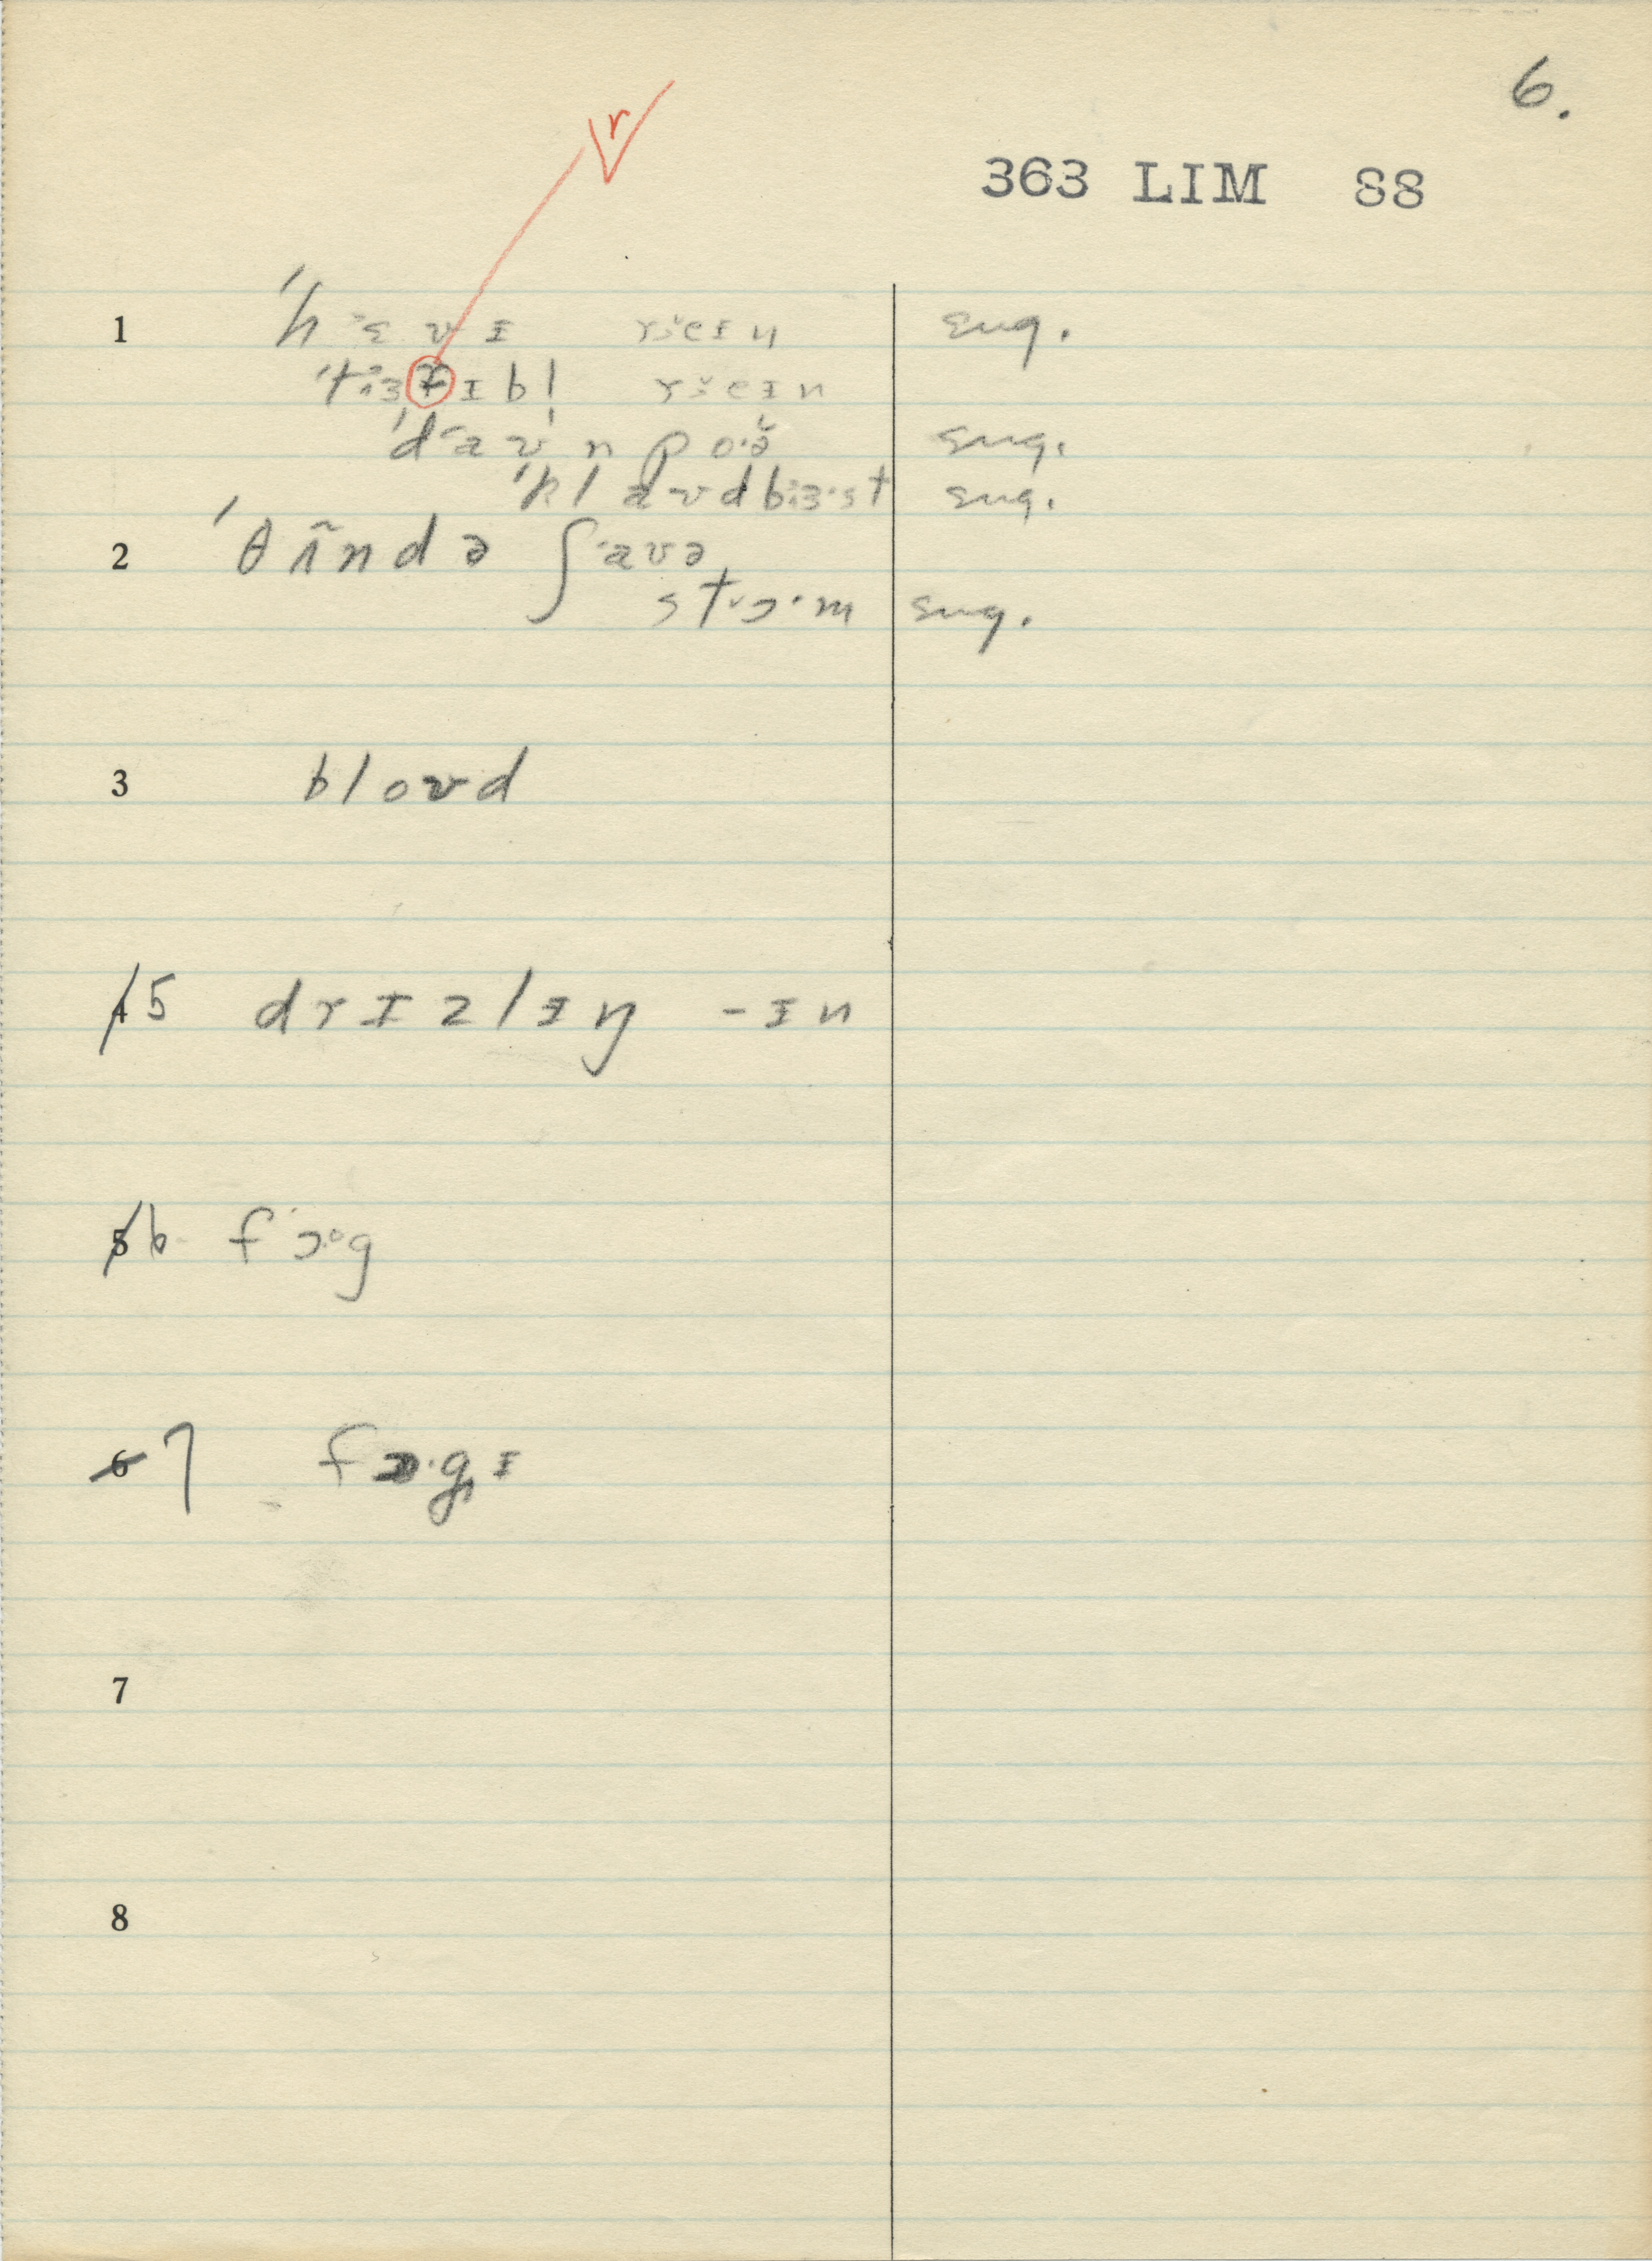 6.
363 LIM 88
r
1 ˈhɛvɪ reɪn sug.
ˈtɜɪɪbl̩ reɪn
ˈdaʊnpoə̆ sug.
ˈklaʊdbɜst sug.
2 ˈθʌ̃ndə ʃaʊə
stɔ·m sug.
3 bloʊd
4 5 drɪzlɪŋ -ɪn
5 6 fɔ·g
6 7 fɔ·gɪ
7
8